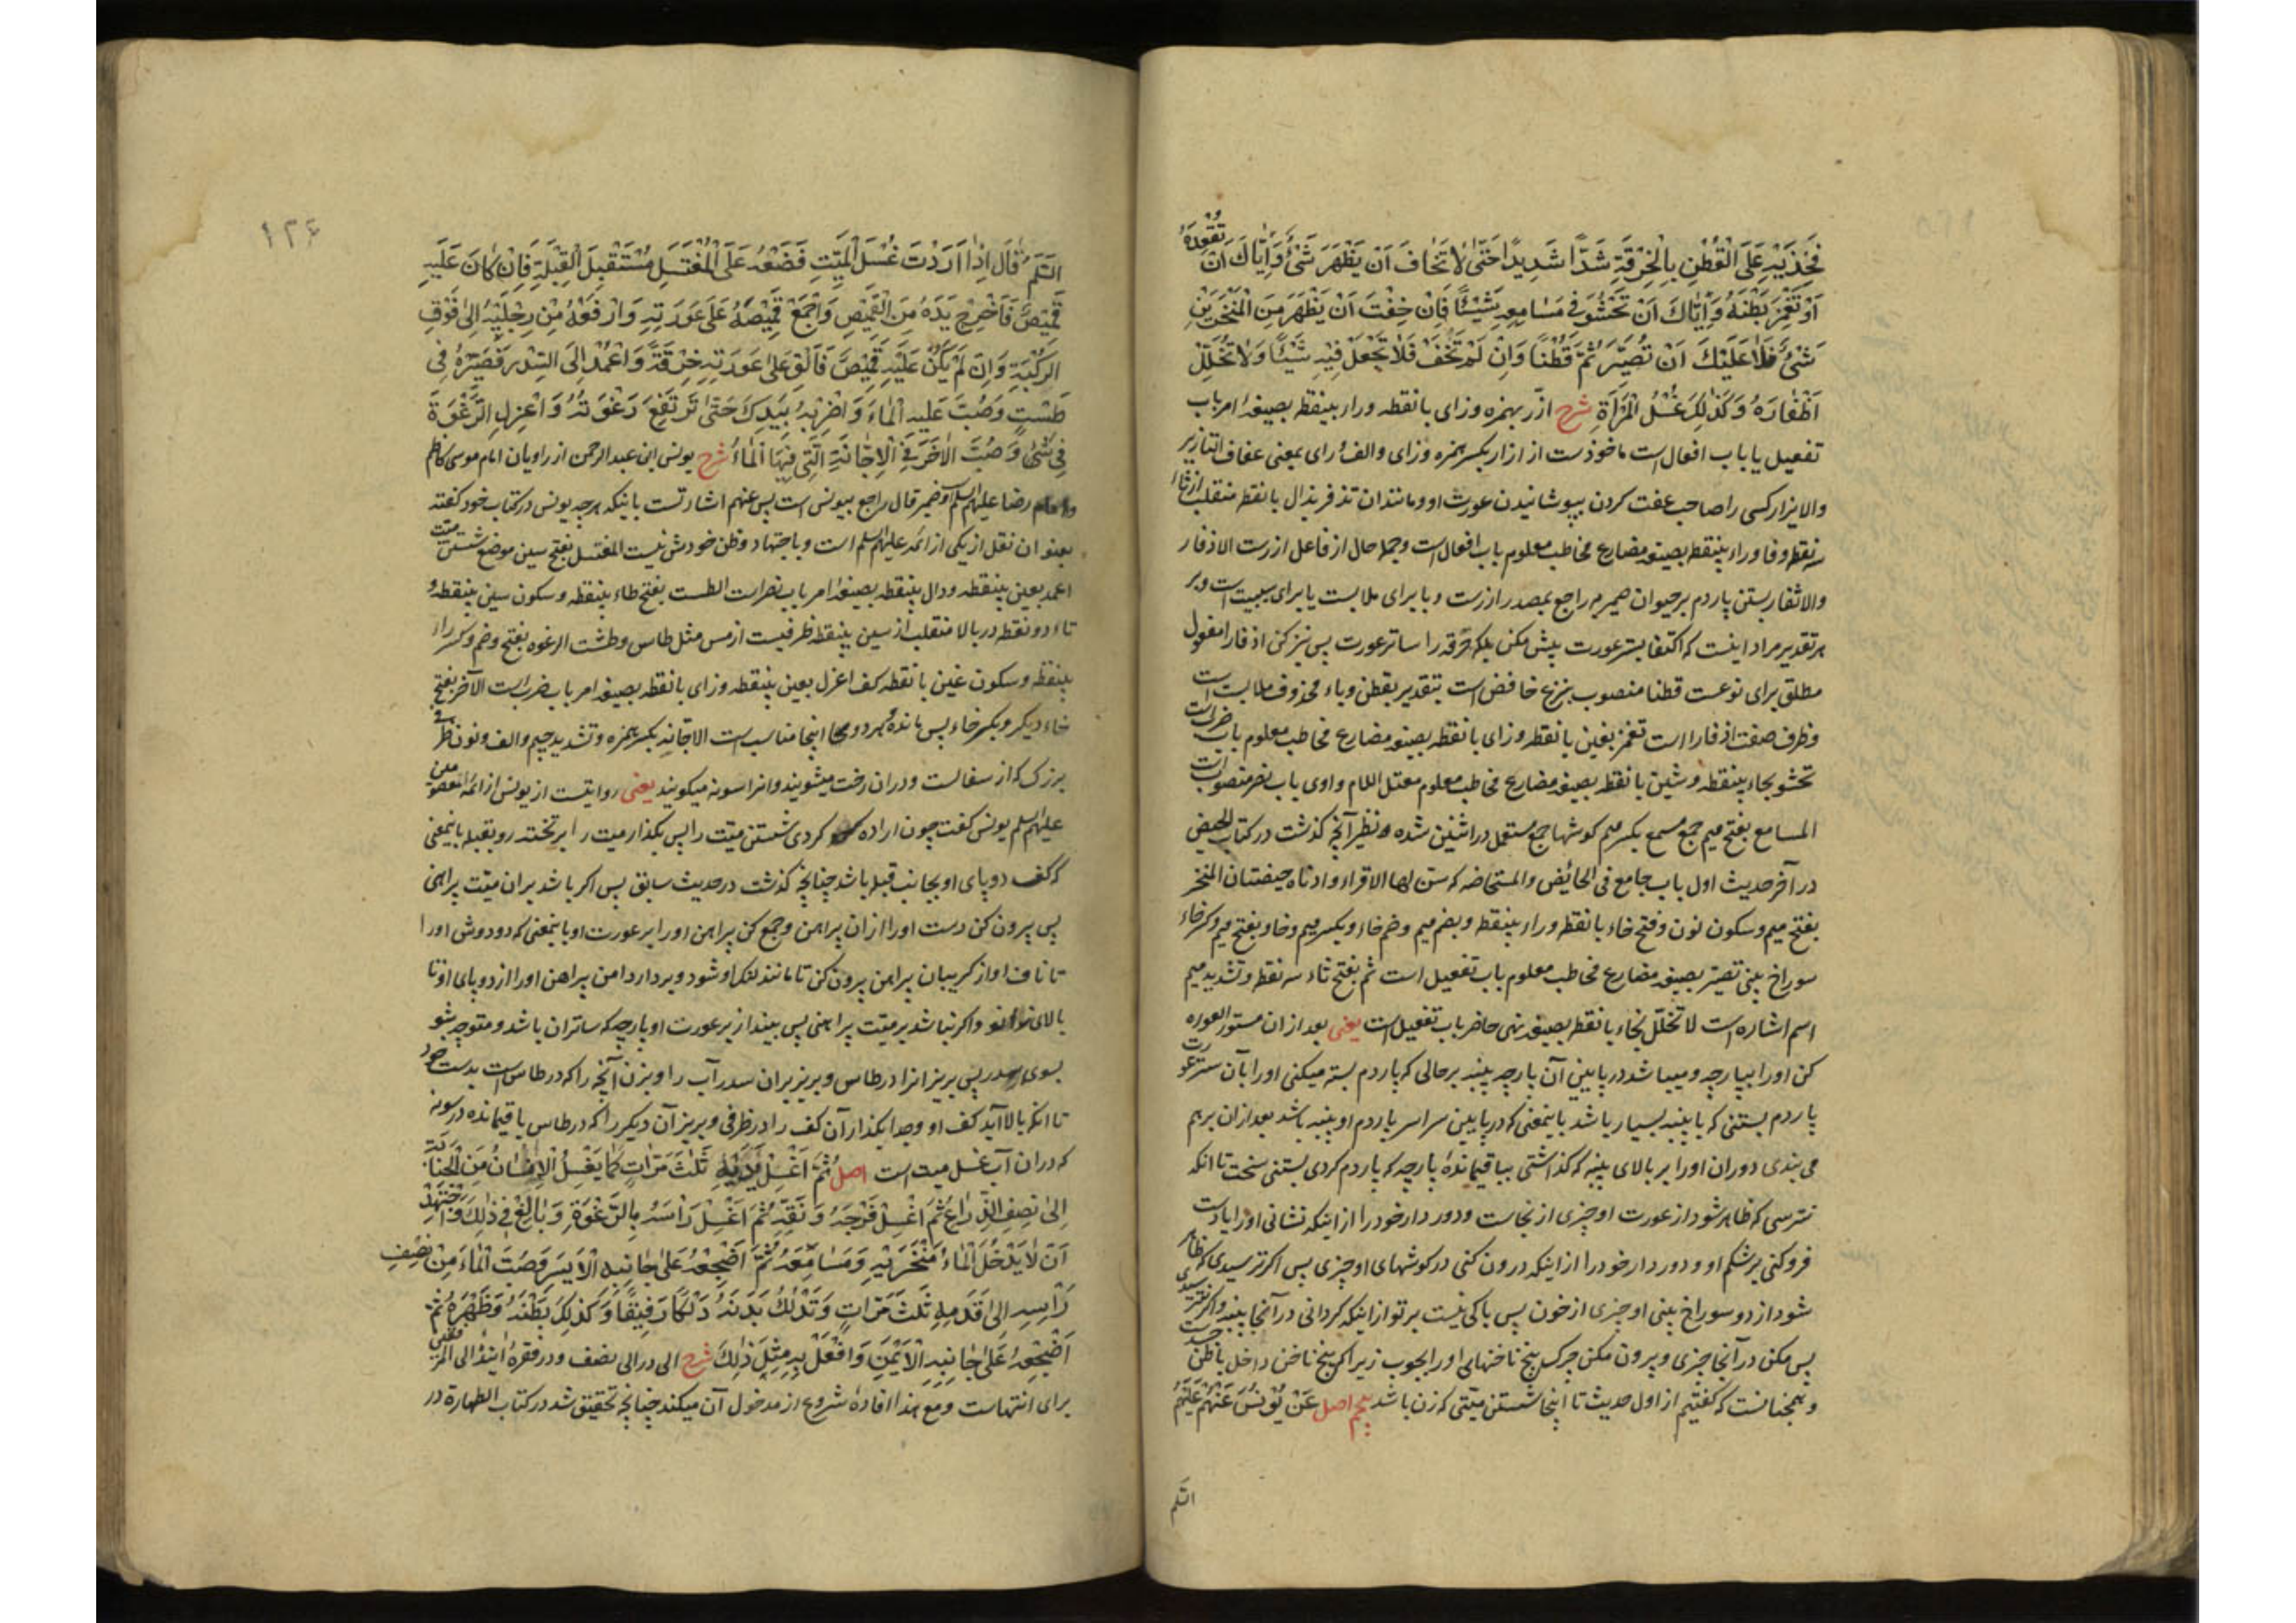 فَخِذَيْهِ عَلَى الْقُطْنِ بِالْخِرْقَةِ شَدًّا شَدِيدًا حَتّٰى لَا تَخَافَ اَنْ يَظْهَرَ شَىْءٌ وَاِيَّاكَ اَنْ تُقْعِدَهُ
اَوْ تَغْمِزَ بَطْنَهُ وَاِيَّاكَ اَنْ تَحْشُوَ فِى مَسَامِعِهِ شَيْئًا فَاِنْ خِفْتَ اَنْ يَظْهَرَ مِنَ الْمَنْخَرَيْنِ
شَىْءٌ فَلَا عَلَيْكَ اَنْ تُصَيِّرَ ثَمَّ قُطْنًا وَاِنْ لَمْ تَخَفْ فَلَا تَجْعَلْ فِيهِ شَيْئًا وَلَا تُخَلِّلْ
اَظْفَارَهُ وَكَذٰلِكَ غُسْلُ الْمَرْاَةِ شرح ازّر بهمزه وزای بانقطه وراء بینقطه بصیغهٔ امر باب
تفعیل یا باب افعال است ماخوذست از ازار بکسر همزه وزای والف ورای بمعنی عفاف التازیر
والایزار کسی را صاحب عفت کردن بپوشانیدن عورت او ومانند ان تذفر بذال بانقطه منقلب از ثاء
سه نقطه وفا وراء بینقطه بصیغه مضارع مخاطب معلوم باب افعال است وجمله حال از فاعل ازرت الاذفار
والاثفار بستن پاردم بر حیوان ضمیر به راجع بمصدر ازرت وبا برای ملابست یا برای سببیت است وبر
هر تقدیر مراد اینست که اکتفا بستر عورت پیش مکن بلکه خرقه را ساتر عورت پس نیز کن اذفارا مفعول
مطلق برای نوعست قطنا منصوب بنزع خافض است بتقدیر بقطن وباء محذوف ملابست است
وظرف صفت اذفارا است تغمز بغین بانقطه وزای بانقطه بصیغه مضارع مخاطب معلوم باب ضرب است
تحشو بحاء بینقطه وشین بانقطه بصیغه مضارع مخاطب معلوم معتل اللام واوی باب نصر منصوب است
المسامع بفتح میم جمع مسمع بکسر میم گوشها جمع مستعمل در اثنین شده نظیر آنچه گذشت در کتاب الحیض
در آخر حدیث اول باب جامع فی الحائض والمستحاضه که سنن لها الاقراء وادناه حیضتان المنخر
بفتح میم وسکون نون وفتح خاء بانقطه وراء بینقطه وبضم میم وضم خاء وبکسر میم وخا وبفتح میم وکسر خاء
سوراخ بینی تصیر بصیغه مضارع مخاطب معلوم باب تفعیل است ثم بفتح ثاء سه نقطه وتشدید میم
اسم اشاره است لا تخلل بخاء بانقطه بصیغه نهی حاضر باب تفعیل است یعنی بعد از ان مستور العوره
کن او را بپارچه ومیباشد در پایین آن پارچه پنبه بر حالی که پاردم بسته میکنی او را بآن ستر عورت
پاردم بستنی که با پنبه بسیار باشد باینمعنی که در پایین سراسر پاردم او پنبه باشد بعد از ان برهم
می بندی دوران او را بر بالای پنبه که گذاشتی بباقیماندهٔ پارچه که پاردم کردی بستنی سخت تا انکه
نترسی که ظاهر شود از عورت او چیزی از نجاست ودور دار خود را از اینکه نشانی او را یا دست
فروکنی بر شکم او ودور دار خود را از اینکه درون کنی در گوشهای او چیزی پس اگر ترسیدی که ظاهر
شود از دو سوراخ بینی او چیزی از خون پس باکی نیست بر تو از اینکه گردانی در آنجا پنبه واگر نترسیدی
پس مکن در آنجا چیزی وبیرون مکن چرک بیخ ناخنهای او را بچوب زیرا که بیخ ناخن داخل باطن
وهمچنانست که گفتیم از اول حدیث تا اینجا شستن میّتی که زن باشد اصل عَنْ يُونُسَ عَنْهُمْ عَلَيْهِمُ
السّلم
١٢٤
السَّلَمُ قَالَ اِذَا اَرَدْتَ غُسْلَ الْمَيِّتِ فَضَعْهُ عَلَى الْمُغْتَسَلِ مُسْتَقْبِلَ الْقِبْلَةِ فَاِنْ كَانَ عَلَيْهِ
قَمِيصٌ فَاَخْرِجْ يَدَهُ مِنَ الْقَمِيصِ وَاجْمَعْ قَمِيصَهُ عَلَى عَوْرَتِهِ وَارْفَعْهُ مِنْ رِجْلَيْهِ اِلٰى فَوْقِ
الرُّكْبَةِ وَاِنْ لَمْ يَكُنْ عَلَيْهِ قَمِيصٌ فَاَلْقِ عَلٰى عَوْرَتِهِ خِرْقَةً وَاعْمِدْ اِلَى السِّدْرِ فَصَيِّرْهُ فِى
طَشْتٍ وَصُبَّ عَلَيْهِ الْمَاءَ وَاضْرِبْهُ بِيَدِكَ حَتّٰى تَرْتَفِعَ رَغْوَتُهُ وَاعْزِلِ الرَّغْوَةَ
فِى شَىْءٍ وَصُبَّ الْاٰخَرَ فِى الْاِجَّانَةِ الَّتِى فِيهَا الْمَاءُ شرح یونس ابن عبدالرحمن از راویان امام موسی کاظم
وامام رضا علیهم السلم وضمیر قال راجع بیونس است پس عنهم اشارتست باینکه هر چه یونس در کتاب خود گفته
بعنوان نقل از یکی از ائمه علیهم السلم است وباجتهاد وظن خودش نیست المغتسل بفتح سین موضع شستن میّت
اعمد بعین بینقطه ودال بینقطه بصیغهٔ امر باب نصر است الطست بفتح طاء بینقطه وسکون سین بینقطه و
تاء دو نقطه در بالا منقلب از سین بینقطه ظرفیست از مس مثل طاس وطشت الرغوه بفتح وضم وکسر راء
بینقطه وسکون غین بانقطه کف اعزل بعین بینقطه وزای بانقطه بصیغه امر باب ضرب است الآخر بفتح
خاء دیگر وبکسر خاء پس مانده وهر دو اینجا مناسب است الاجّانه بکسر همزه وتشدید جیم والف ونون ظرفی
بزرگ که از سفالست ودران رخت میشویند وانرا سونه میگویند یعنی روایتست از یونس از ائمه معصومین
علیهم السلم یونس گفت چون اراده کردی شستن میّت را پس بگذار میت را بر تخته رو بقبله باینمعنی
که کف دو پای او بجانب قبله باشد چنانچه گذشت در حدیث سابق پس اگر باشد بران میّت پیراهنی
پس بیرون کن دست او را از ان پیراهن وجمع کن پیراهن او را بر عورت او باینمعنی که دو دوش او را
تا ناف او از گریبان پیراهن بیرون کن تا مانند لنگ او شود وبردار دامن پیراهن او را از دو پای او تا
بالای زانو واگر نباشد بر میّت پیراهنی پس بینداز بر عورت او پارچه که ساتر ان باشد ومتوجه شو
بسوی سدر پس بریز انرا در طاس وبریز بران سدر آب را وبزن آنچه را که در طاس است بدست خود
تا انکه بالا آید کف او وجدا بگذار آن کف را در ظرفی وبریز آن دیگر را که در طاس باقیمانده در سونه
که دران آب غسل میت است اصل ثُمَّ اغْسِلْ يَدَيْهِ ثَلٰثَ مَرَّاتٍ كَمَا يَغْسِلُ الْاِنْسَانُ مِنَ الْجَنَابَةِ
اِلٰى نِصْفِ الذِّرَاعِ ثُمَّ اغْسِلْ فَرْجَهُ وَنَقِّهِ ثُمَّ اغْسِلْ رَاْسَهُ بِالرَّغْوَةِ وَبَالِغْ فِى ذٰلِكَ وَاجْتَهِدْ
اَنْ لَا يَدْخُلَ الْمَاءُ مَنْخَرَيْهِ وَمَسَامِعَهُ ثُمَّ اَضْجِعْهُ عَلٰى جَانِبِهِ الْاَيْسَرِ وَصُبَّ الْمَاءَ مِنْ نِصْفِ
رَاْسِهِ اِلٰى قَدَمَيْهِ ثَلٰثَ مَرَّاتٍ وَتَدْلُكُ بَدَنَهُ دَلْكًا رَفِيقًا وَكَذٰلِكَ بَطْنَهُ وَظَهْرَهُ ثُمَّ
اَضْجِعْهُ عَلٰى جَانِبِهِ الْاَيْمَنِ وَافْعَلْ بِهِ مِثْلَ ذٰلِكَ شرح الی در الی نصف ودر فقره ایتیهٔ الی المرفقین
برای انتهاست ومع هذا افادهٔ شروع از مدخول آن میکند چنانچه تحقیق شد در کتاب الطهارة در